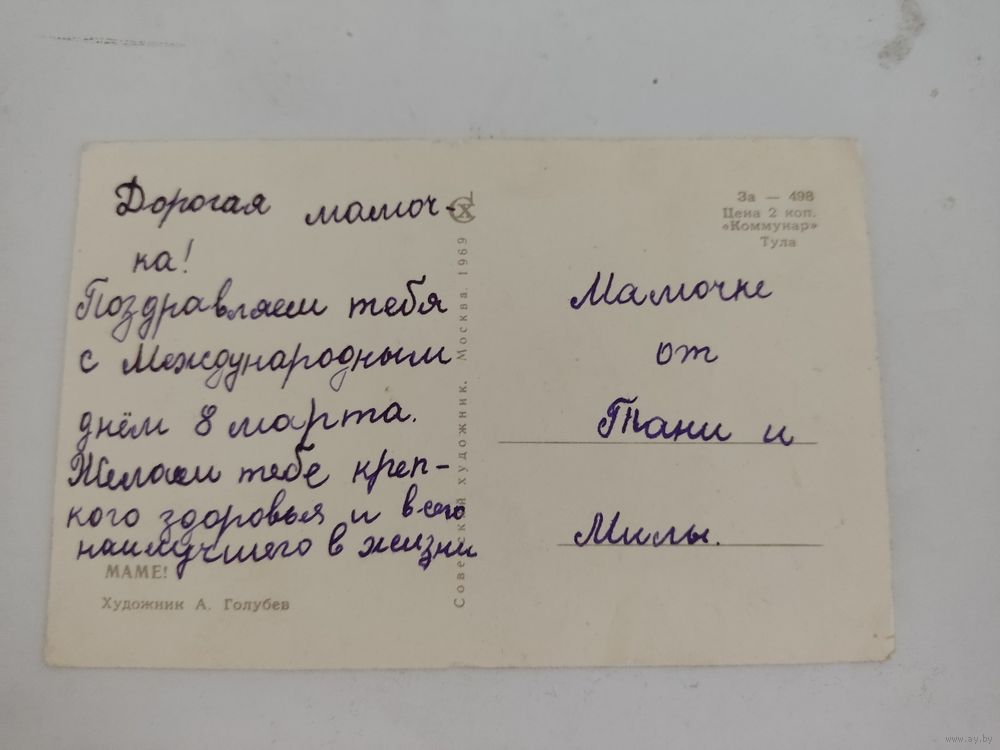 Дорогая мамоч-
ка!
Поздравляем тебя
с Международным
днём 8 марта.
Желаем тебе креп-
кого здоровья и всего
наилучшего в жизни
МАМЕ!
Художник А. Голубев
Советский художник. Москва. 1969
За — 498
Цена 2 коп.
«Коммунар»
Тула
Мамочке
от
Тани и
Милы.
www.ay.by